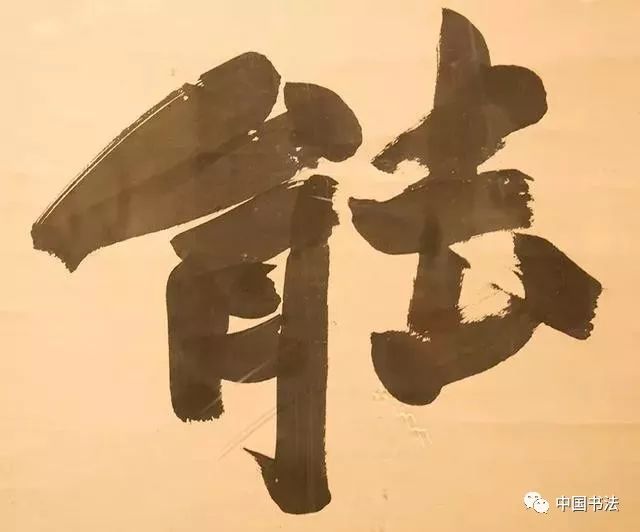 能
中国书法